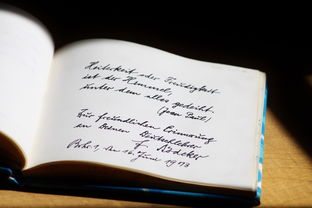 Heiterkeit oder Freudigkeit
ist der Himmel,
unter dem alles gedeiht,
(Jean Paul)
Zur freundlichen Erinnerung
an Deinen
F.
den 16. Juni 1973